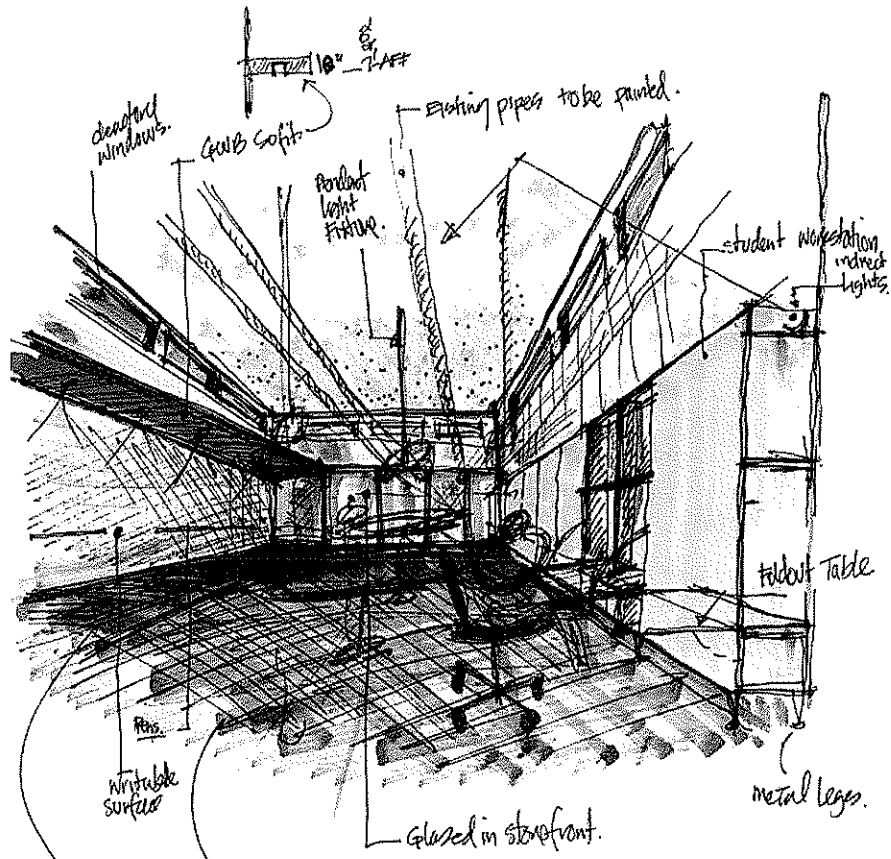 18"
7'-AFF
windows.
GWB Sofit.
Existing pipes to be painted.
Pendent
light
Fixture.
student workstation
indirect
lights.
Foldout Table
Pens.
writable
surface
metal leges.
Glazed in storefront.